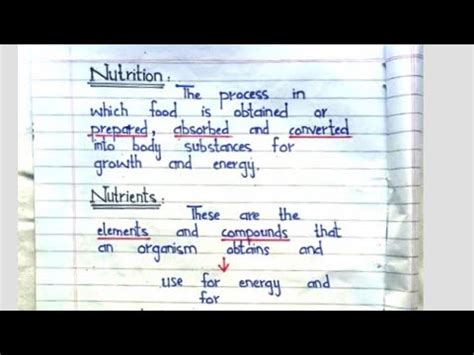 Nutrition:
The process in
which food is obtained or
prepared, absorbed and converted
into body substances for
growth and energy.
Nutrients:
These are the
elements and compounds that
an organism obtains and
use for energy and
for